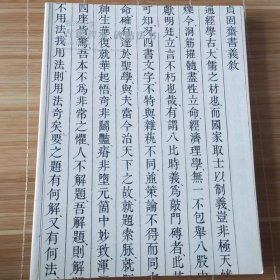 貞固齋書義敘
通經學古大儒之材也而國家取士以制義豈非極天
練今洞筋擢髓盡性立命經濟理學無一不包舉八股中
獻明廷立言不朽也哉有謂八比時義為敲門磚者此
可知況四書文字不特與雜藝不同並策論不得而同
命確達於聖學與夫當今治天下之故就題索脈就
種生華復就華起悟奇非關豔奇非墮元箇中妙致渾
四座驚吾本不為非常之懼人不解題吾解題則
不用法我用法則用法奇矣要之題有何解又有何法